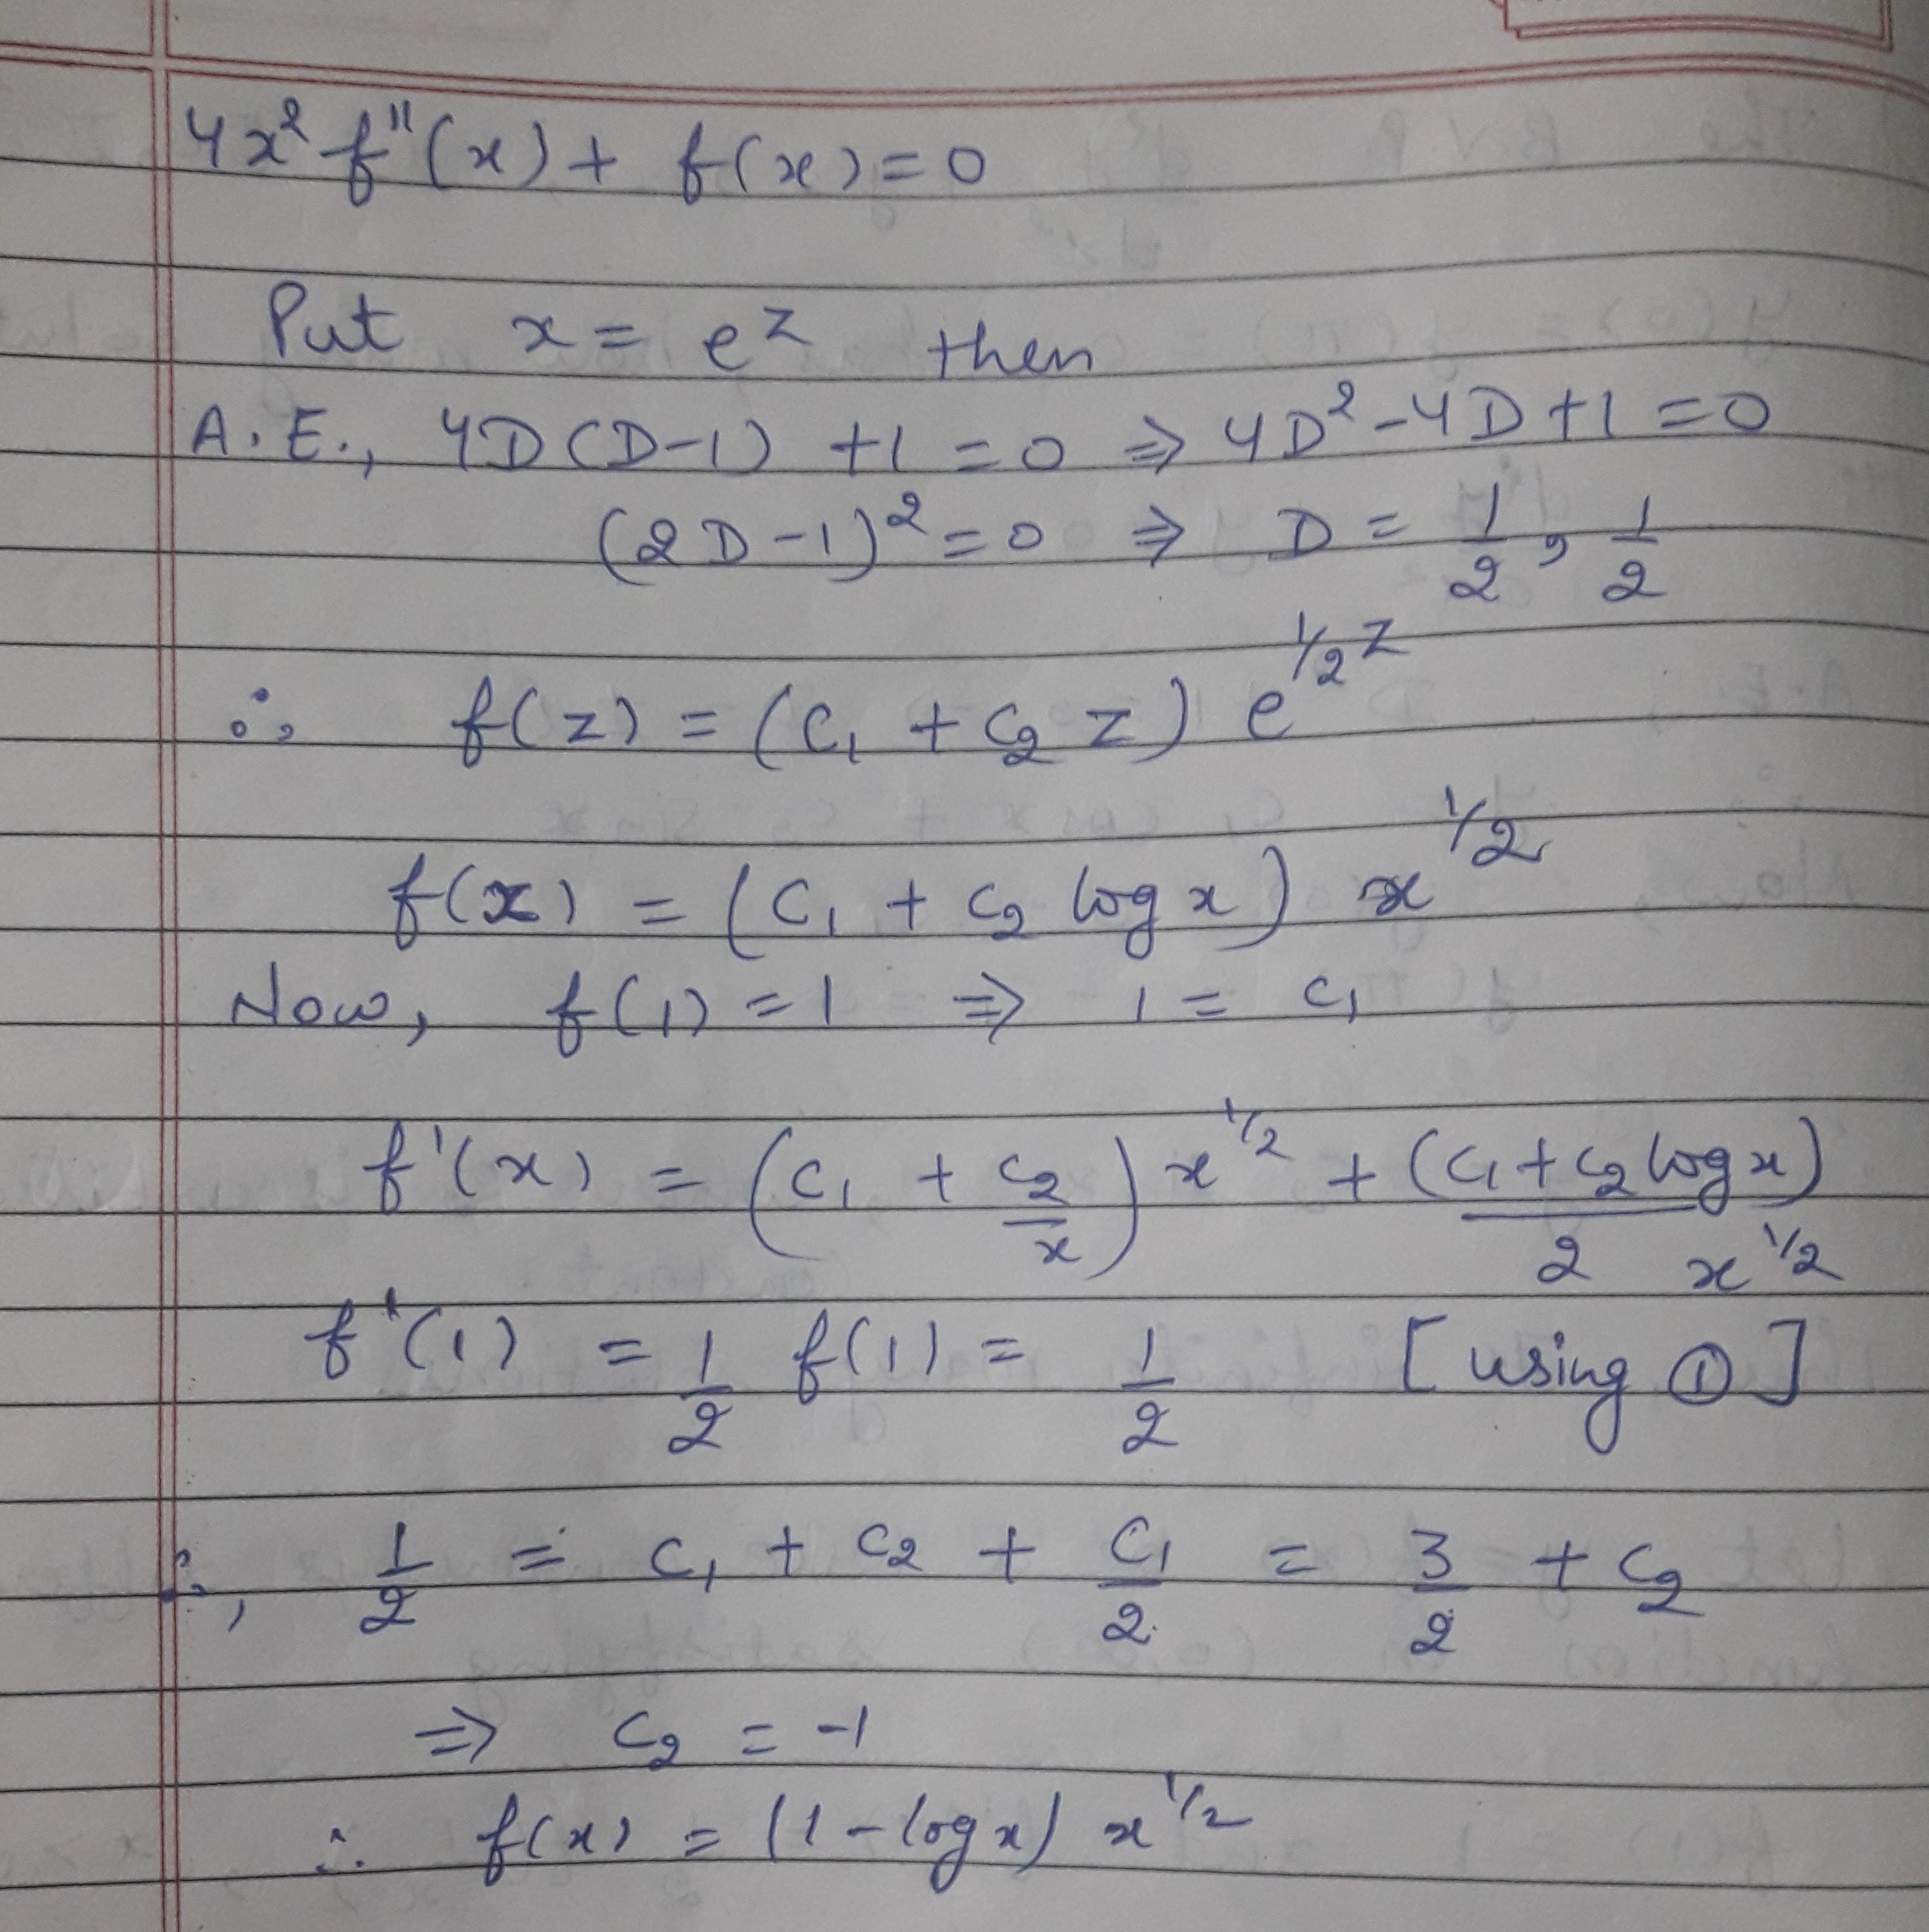 4x² f''(x) + f(x) = 0
Put x = e^z then
A.E., 4D(D-1) + 1 = 0 ⇒ 4D² - 4D + 1 = 0
(2D-1)² = 0 ⇒ D = 1/2, 1/2
∴ f(z) = (C₁ + C₂ z) e^(1/2 z)
f(x) = (C₁ + C₂ log x) x^(1/2)
Now, f(1) = 1 ⇒ 1 = C₁
f'(x) = (C₁ + C₂/x) x^(1/2) + (C₁ + C₂ log x)/(2 x^(1/2))
f'(1) = 1/2 f(1) = 1/2 [using ①]
∴, 1/2 = C₁ + C₂ + C₁/2 = 3/2 + C₂
⇒ C₂ = -1
∴ f(x) = (1 - log x) x^(1/2)